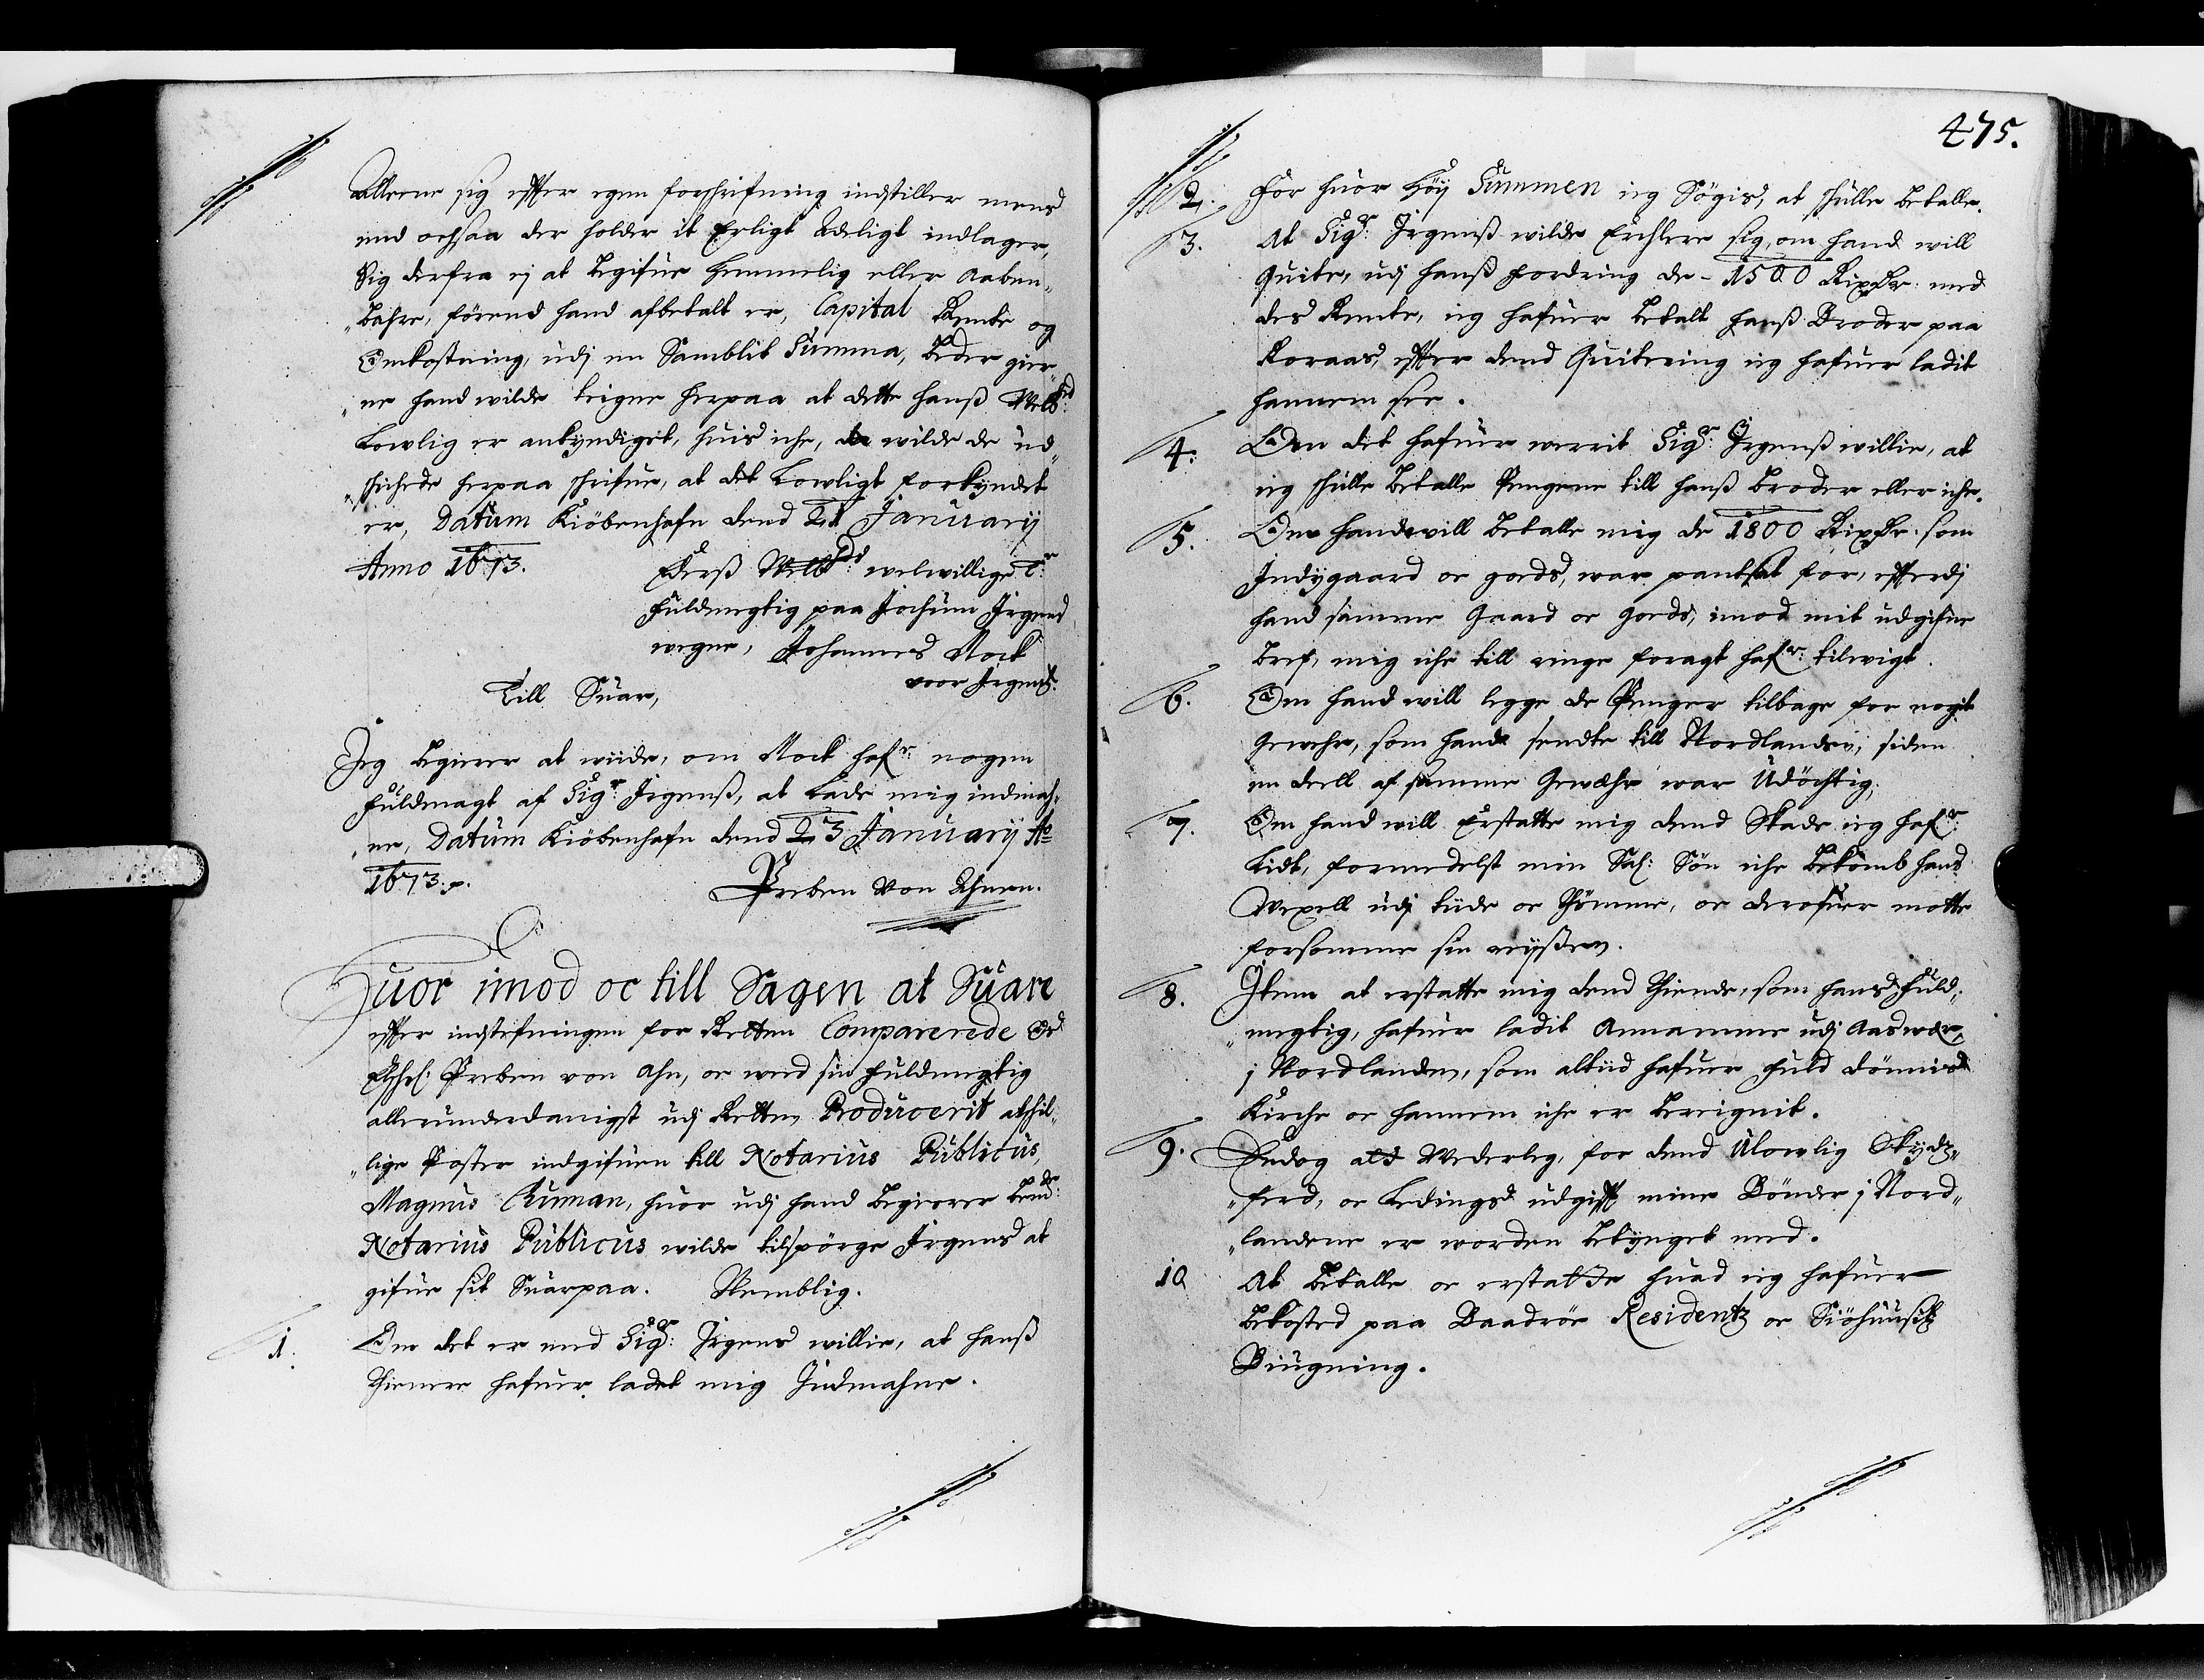 allerne sig effter egen forskrifning indstiller mens
imod ochsaa der holder it Erligt Adeligt indlager,
Sig derfra ej at begifue hemmelig eller aaben¬
„bahre, förend hand afbetalt er, Capital Rente og
Omkostning, udj en Samblit Summa, beder gier¬
„ne hand wilde teigne herpaa at dette hanß Welbhd:
Lowlig er ankyndiget, huis iche, da wilde de ud¬
„skichede herpaa skrifue, at det Lowligt forkyndet
er, Datum Kiöbenhafn dend 21 Januarij
Anno 1673.
Ederß Welbhd: welwillige Tr
fuldmegtig paa Jochum Irgens
wegne, Johannes Mock
woor Irgens.
Till Suar,
Jeg begierer at wiide, om Mock hafr nogen
fuldmagt af Sigr: Jrgenß, at Lade mig indmah¬
„ne, Datum Kiöbenhafn dend 23 Januarij Ao
1673.
Preben von Ahnen.
Huor imod oc till Sagen at Suare
effter indstefningen for Retten Comparerede
Preben von Ahn, oc wed sin fuldmegtig
allerunderdanigst udj Retten Producerit adskil¬
„lige Poster indgifuen till Notarius Publicus,
Magnus Ruman, huor udj hand begierer bemd:
Notarius Publicus wilde tilspörge Jrgens at
gifue sit Suarpaa. Nemblig.
1. Om det er med Sigr: Jrgens willie, at hanß
thienere hafuer ladet mig Jndmahne.
475.
2. For huor höy Summen ieg Sögis, at skulle betalle.
3. At Sigr: Jrgenß wilde Erchlere sig, om hand will
quitere, udj hanß fordring de - 1500 Rixdlr: med
des Rente, ieg hafuer betalt hanß Broder paa
Roraas, effter dend quitering ieg hafuer ladit
hannem see.
4. Om det hafuer werrit Sigr: Jrgenß willie, at
ieg skulle betalle Pengene till hanß broder eller iche.
5. Om hand will betalle mig de 1800 Rixdlr. som
Indyggaard oc gods, war pantsat for, effterdj
hand samme gaard oc gords, imod mit udgifne
bref, mig iche till ringe foragt hafr: tilwigt.
6. Om hand will legge de Penger tilbage for nogit
gewehr, som hand sendte till Nordlanden, siden
en deell af samme Gewæhr war Udöchtig.
7. Om hand will Erstatte mig dend Skade ieg hafr:
Lidt, formedelst min Sal: Sön iche bekomb hans
Wexell udj tiide oc thömme, oc derofuer motte
forsomme sin reyßen.
8. Jtem at erstatte mig dend thiende, som hans fuld¬
„megtig, hafuer ladit Annamme udj Aaswær,
j Nordlanden, som altiid hafuer fuld dönnis
Kirche oc hannem iche er berigtit.
9. Endog ald Wederleg, for dend Ulowlig Skyds¬
„ferd, oc Ledings udgifft mine bönder j Nord¬
„landene er worden betynget med.
10 At betalle oc erstatte huad ieg hafuer
bekosted paa Baadröe Residentz oc Siöhuusß
Biugning.